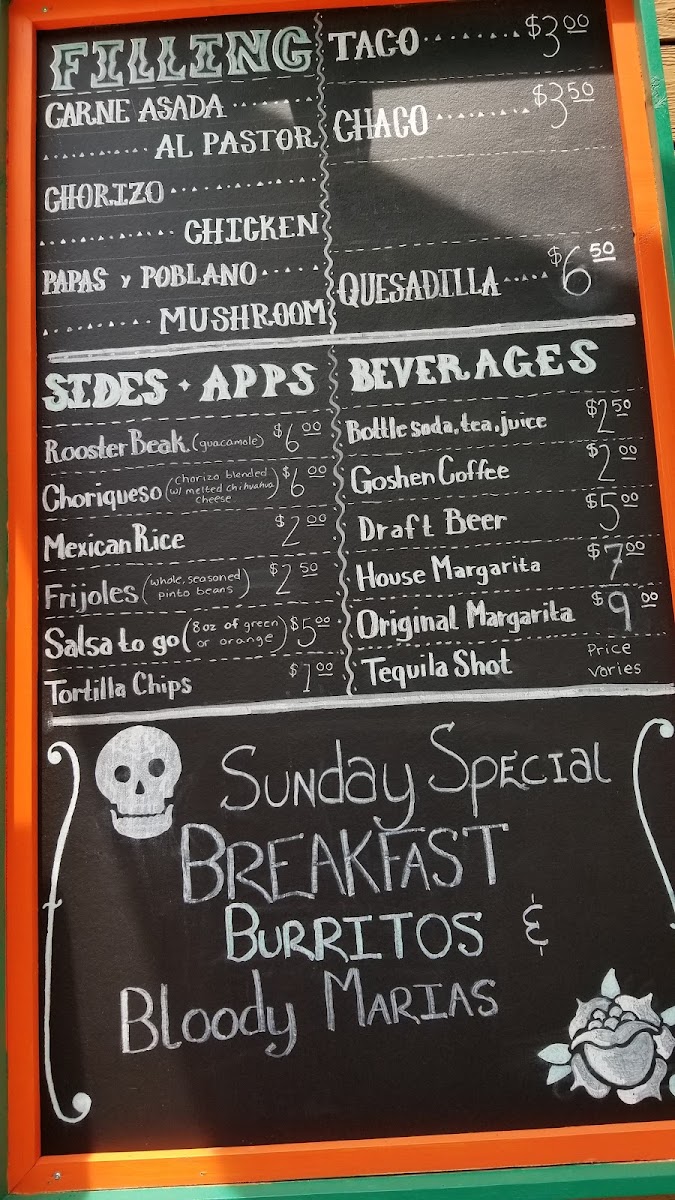 FILLING
CARNE ASADA
AL PASTOR
CHORIZO
CHICKEN
PAPAS y POBLANO
MUSHROOM
TACO $3.00
CHACO $3.50
QUESADILLA $6.50
SIDES · APPS
Rooster Beak (guacamole) $6.00
Choriqueso (chorizo blended w/ melted chihuahua cheese) $6.00
Mexican Rice $2.00
Frijoles (whole, seasoned pinto beans) $2.50
Salsa to go (8 oz of green or orange) $5.00
Tortilla Chips $1.00
BEVERAGES
Bottle soda, tea, juice $2.50
Goshen Coffee $2.00
Draft Beer $5.00
House Margarita $7.00
Original Margarita $9.00
Tequila Shot Price varies
Sunday Special
BREAKFAST
BURRITOS &
Bloody MARIAS